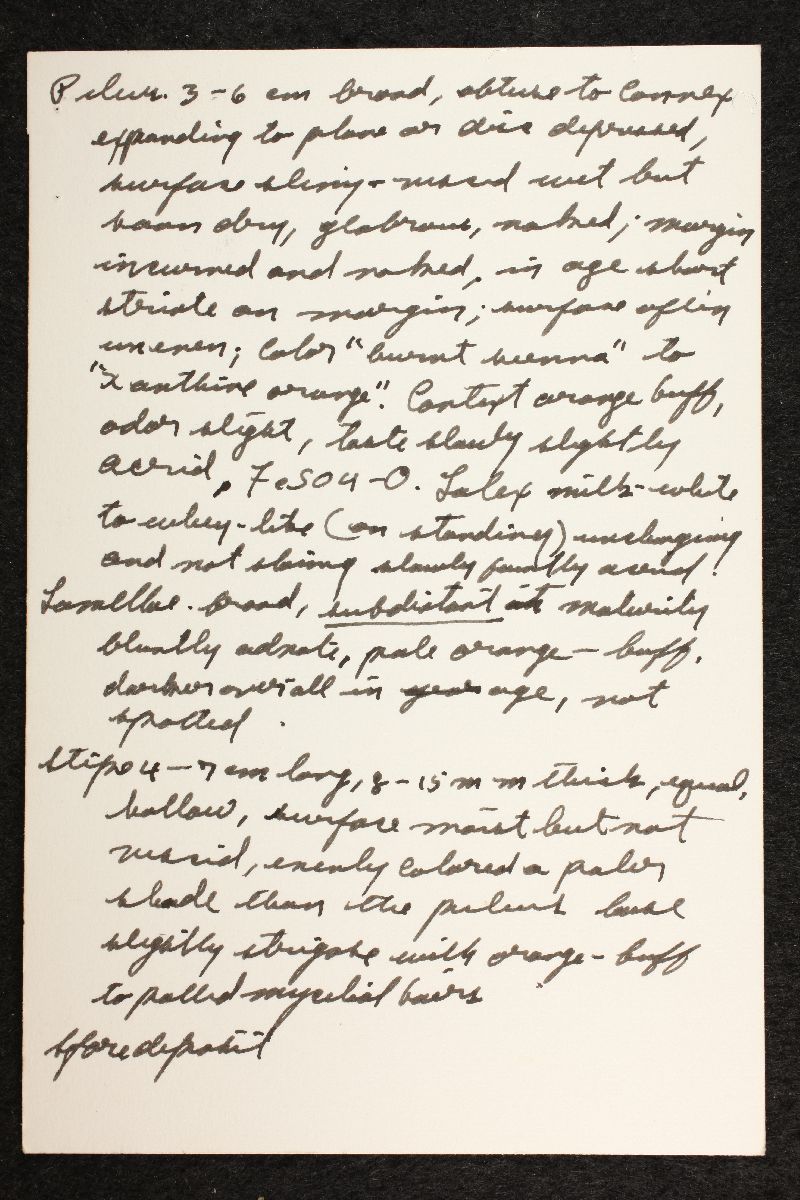 Pileus. 3-6 cm broad, obtuse to convex
expanding to plane or disc depressed,
surface slimy-viscid wet but
soon dry, glabrous, naked; margin
incurved and naked, in age short
striate on margin; surface often
uneven; color "burnt sienna" to
"Xanthine orange". Context orange buff,
odor slight, taste slowly slightly
acrid, FeSO4-O. Latex milk-white
to whey-like (on standing) unchanging
and not staining slowly faintly acrid.
Lamellae. broad, subdistant at maturity
bluntly adnate, pale orange-buff,
darker overall in age, not
spotted.
Stipe 4-7 cm long, 8-15 mm thick, equal,
hollow, surface moist but not
viscid, evenly colored a paler
shade than the pileus base
slightly strigose with orange-buff
to pallid mycelial hairs
Spore deposit